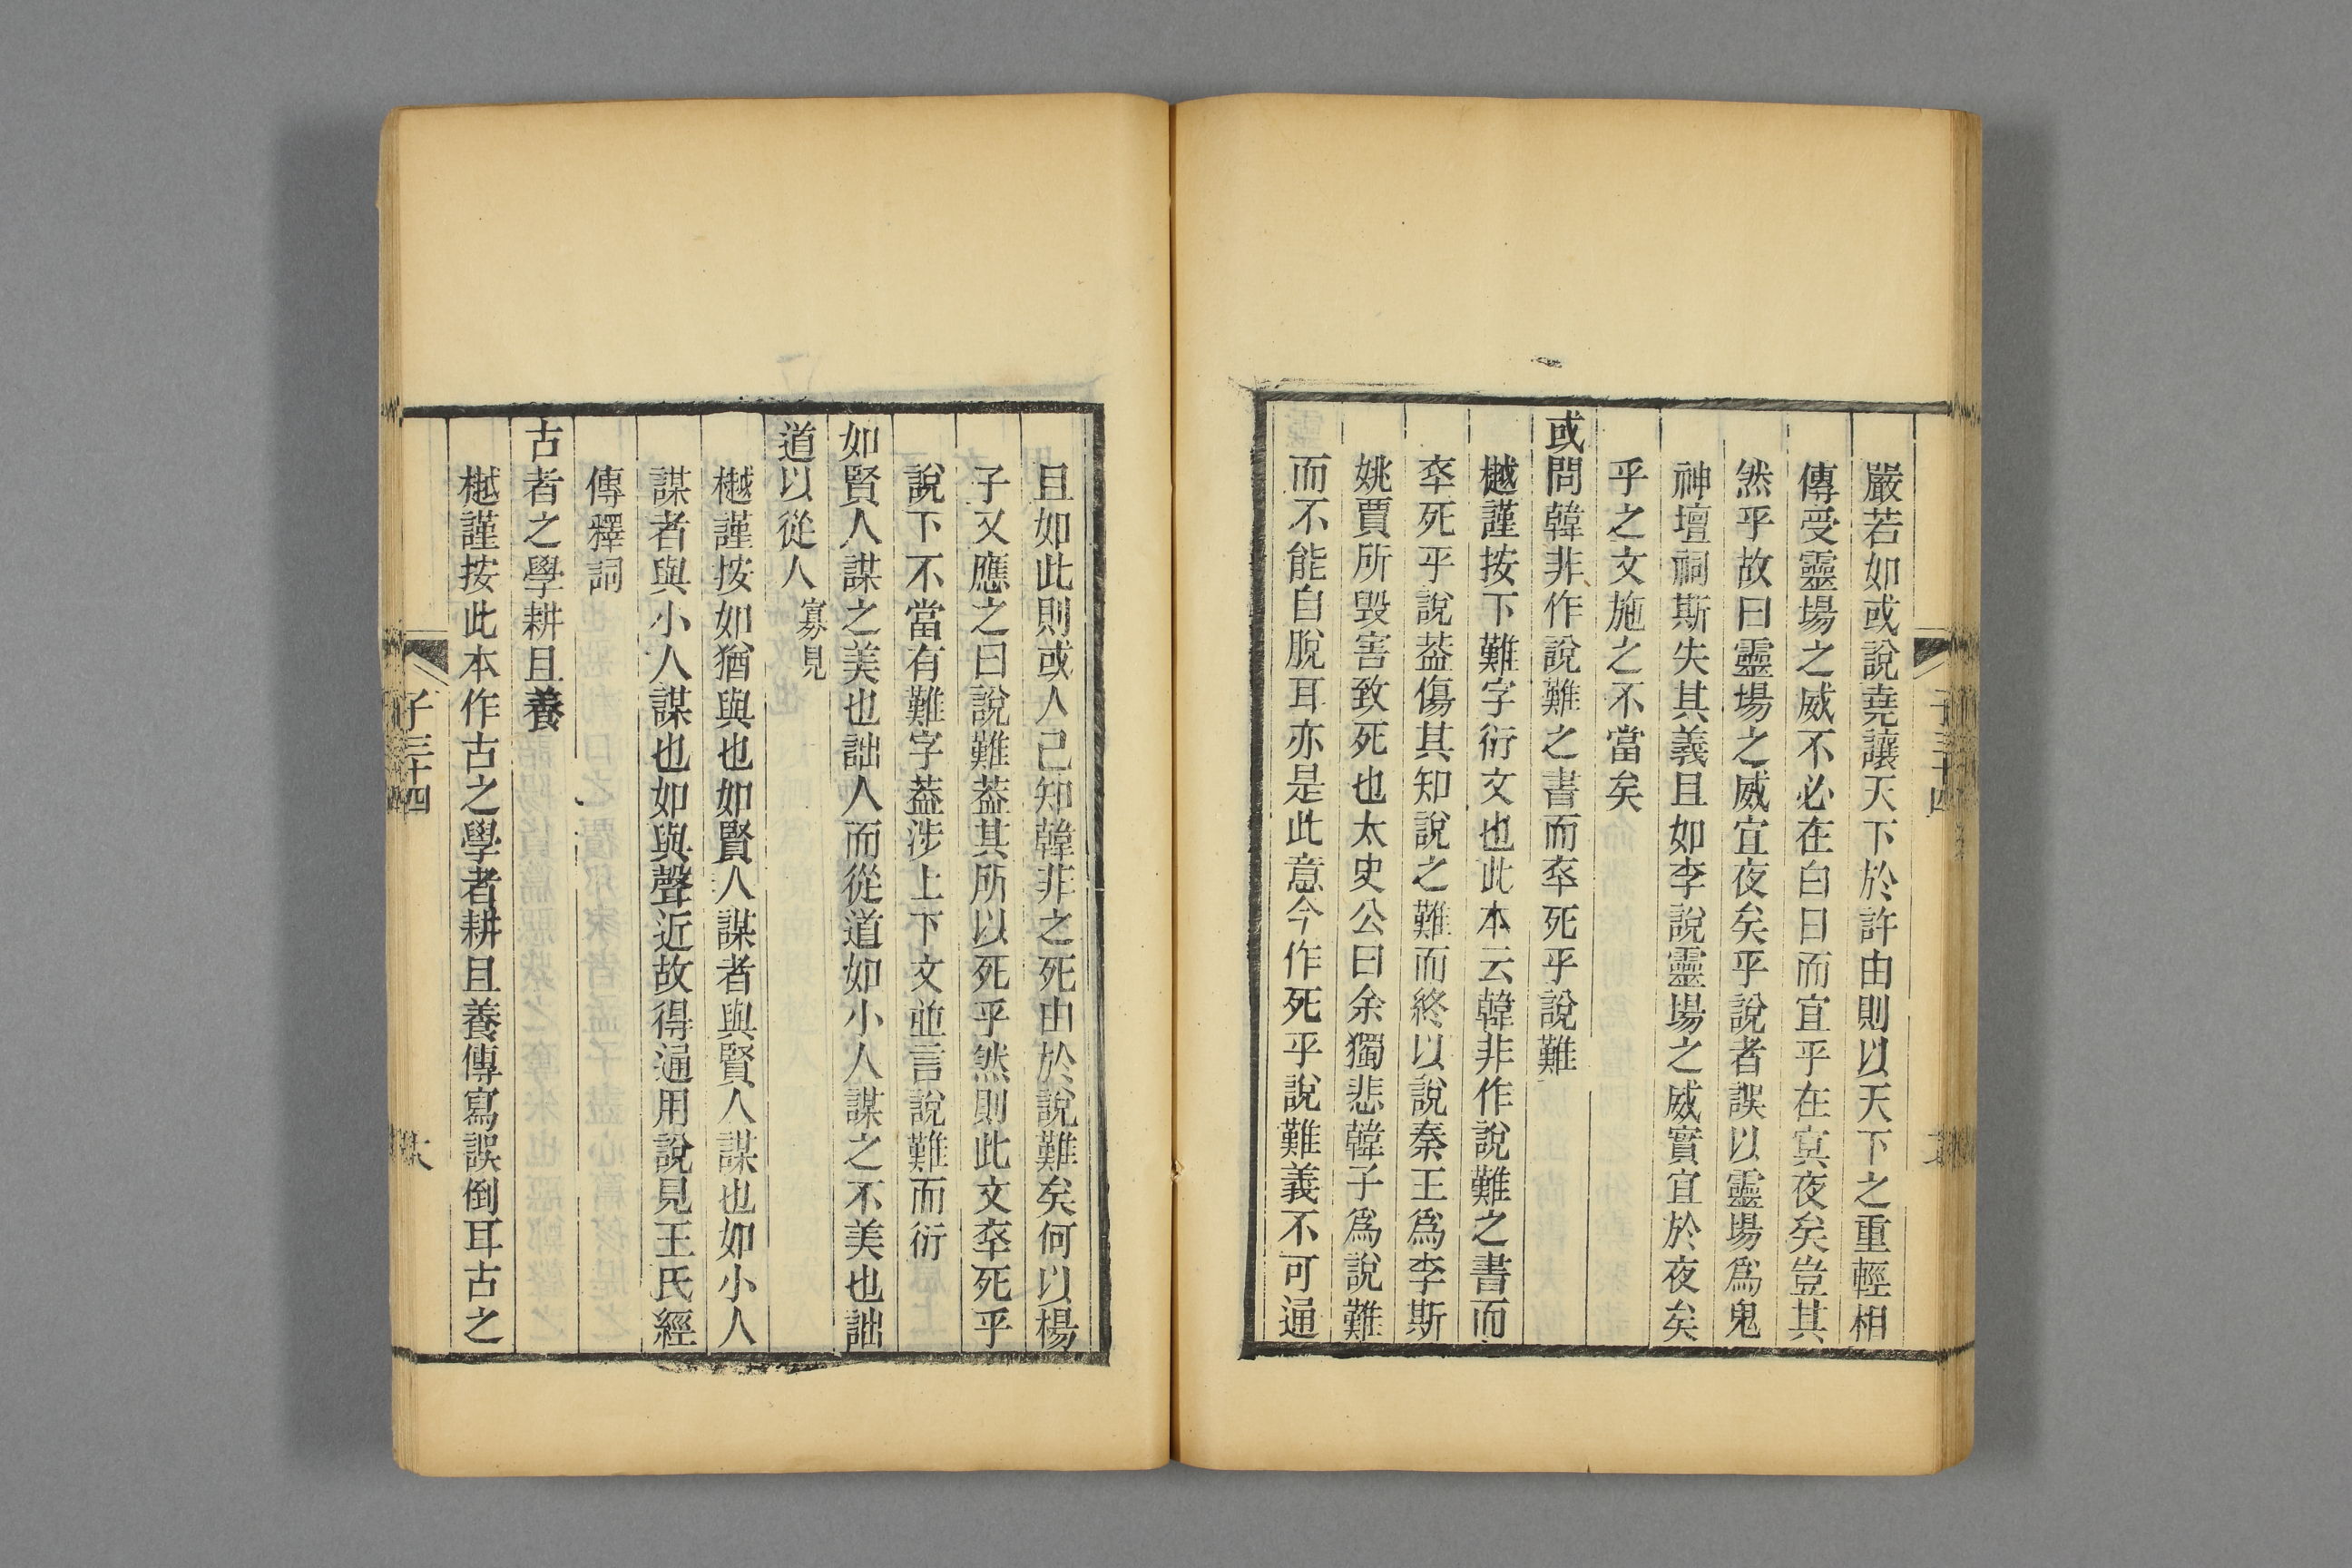 嚴若如或說堯讓天下於許由則以天下之重輕相
傳受靈場之威不必在白日而宜乎在寘夜矣豈其
然乎故曰靈場之威宜夜矣乎說者誤以靈場爲鬼
神壇祠斯失其義且如李說靈場之威實宜於夜矣
乎之文施之不當矣
或問韓非作說難之書而卒死乎說難
樾謹按下難字衍文也此本云韓非作說難之書而
卒死乎說葢傷其知說之難而終以說秦王爲李斯
姚賈所毀害致死也太史公曰余獨悲韓子爲說難
而不能自脫耳亦是此意今作死乎說難義不可通
且如此則或人己知韓非之死由於說難矣何以楊
子又應之曰說難葢其所以死乎然則此文卒死乎
說下不當有難字葢涉上下文並言說難而衍
如賢人謀之美也詘人而從道如小人謀之不美也詘
道以從人 寡見
樾謹按如猶與也如賢人謀者與賢人謀也如小人
謀者與小人謀也如與聲近故得通用說見王氏經
傳釋詞
古者之學耕且養
樾謹按此本作古之學者耕且養傳寫誤倒耳古之
子三十四